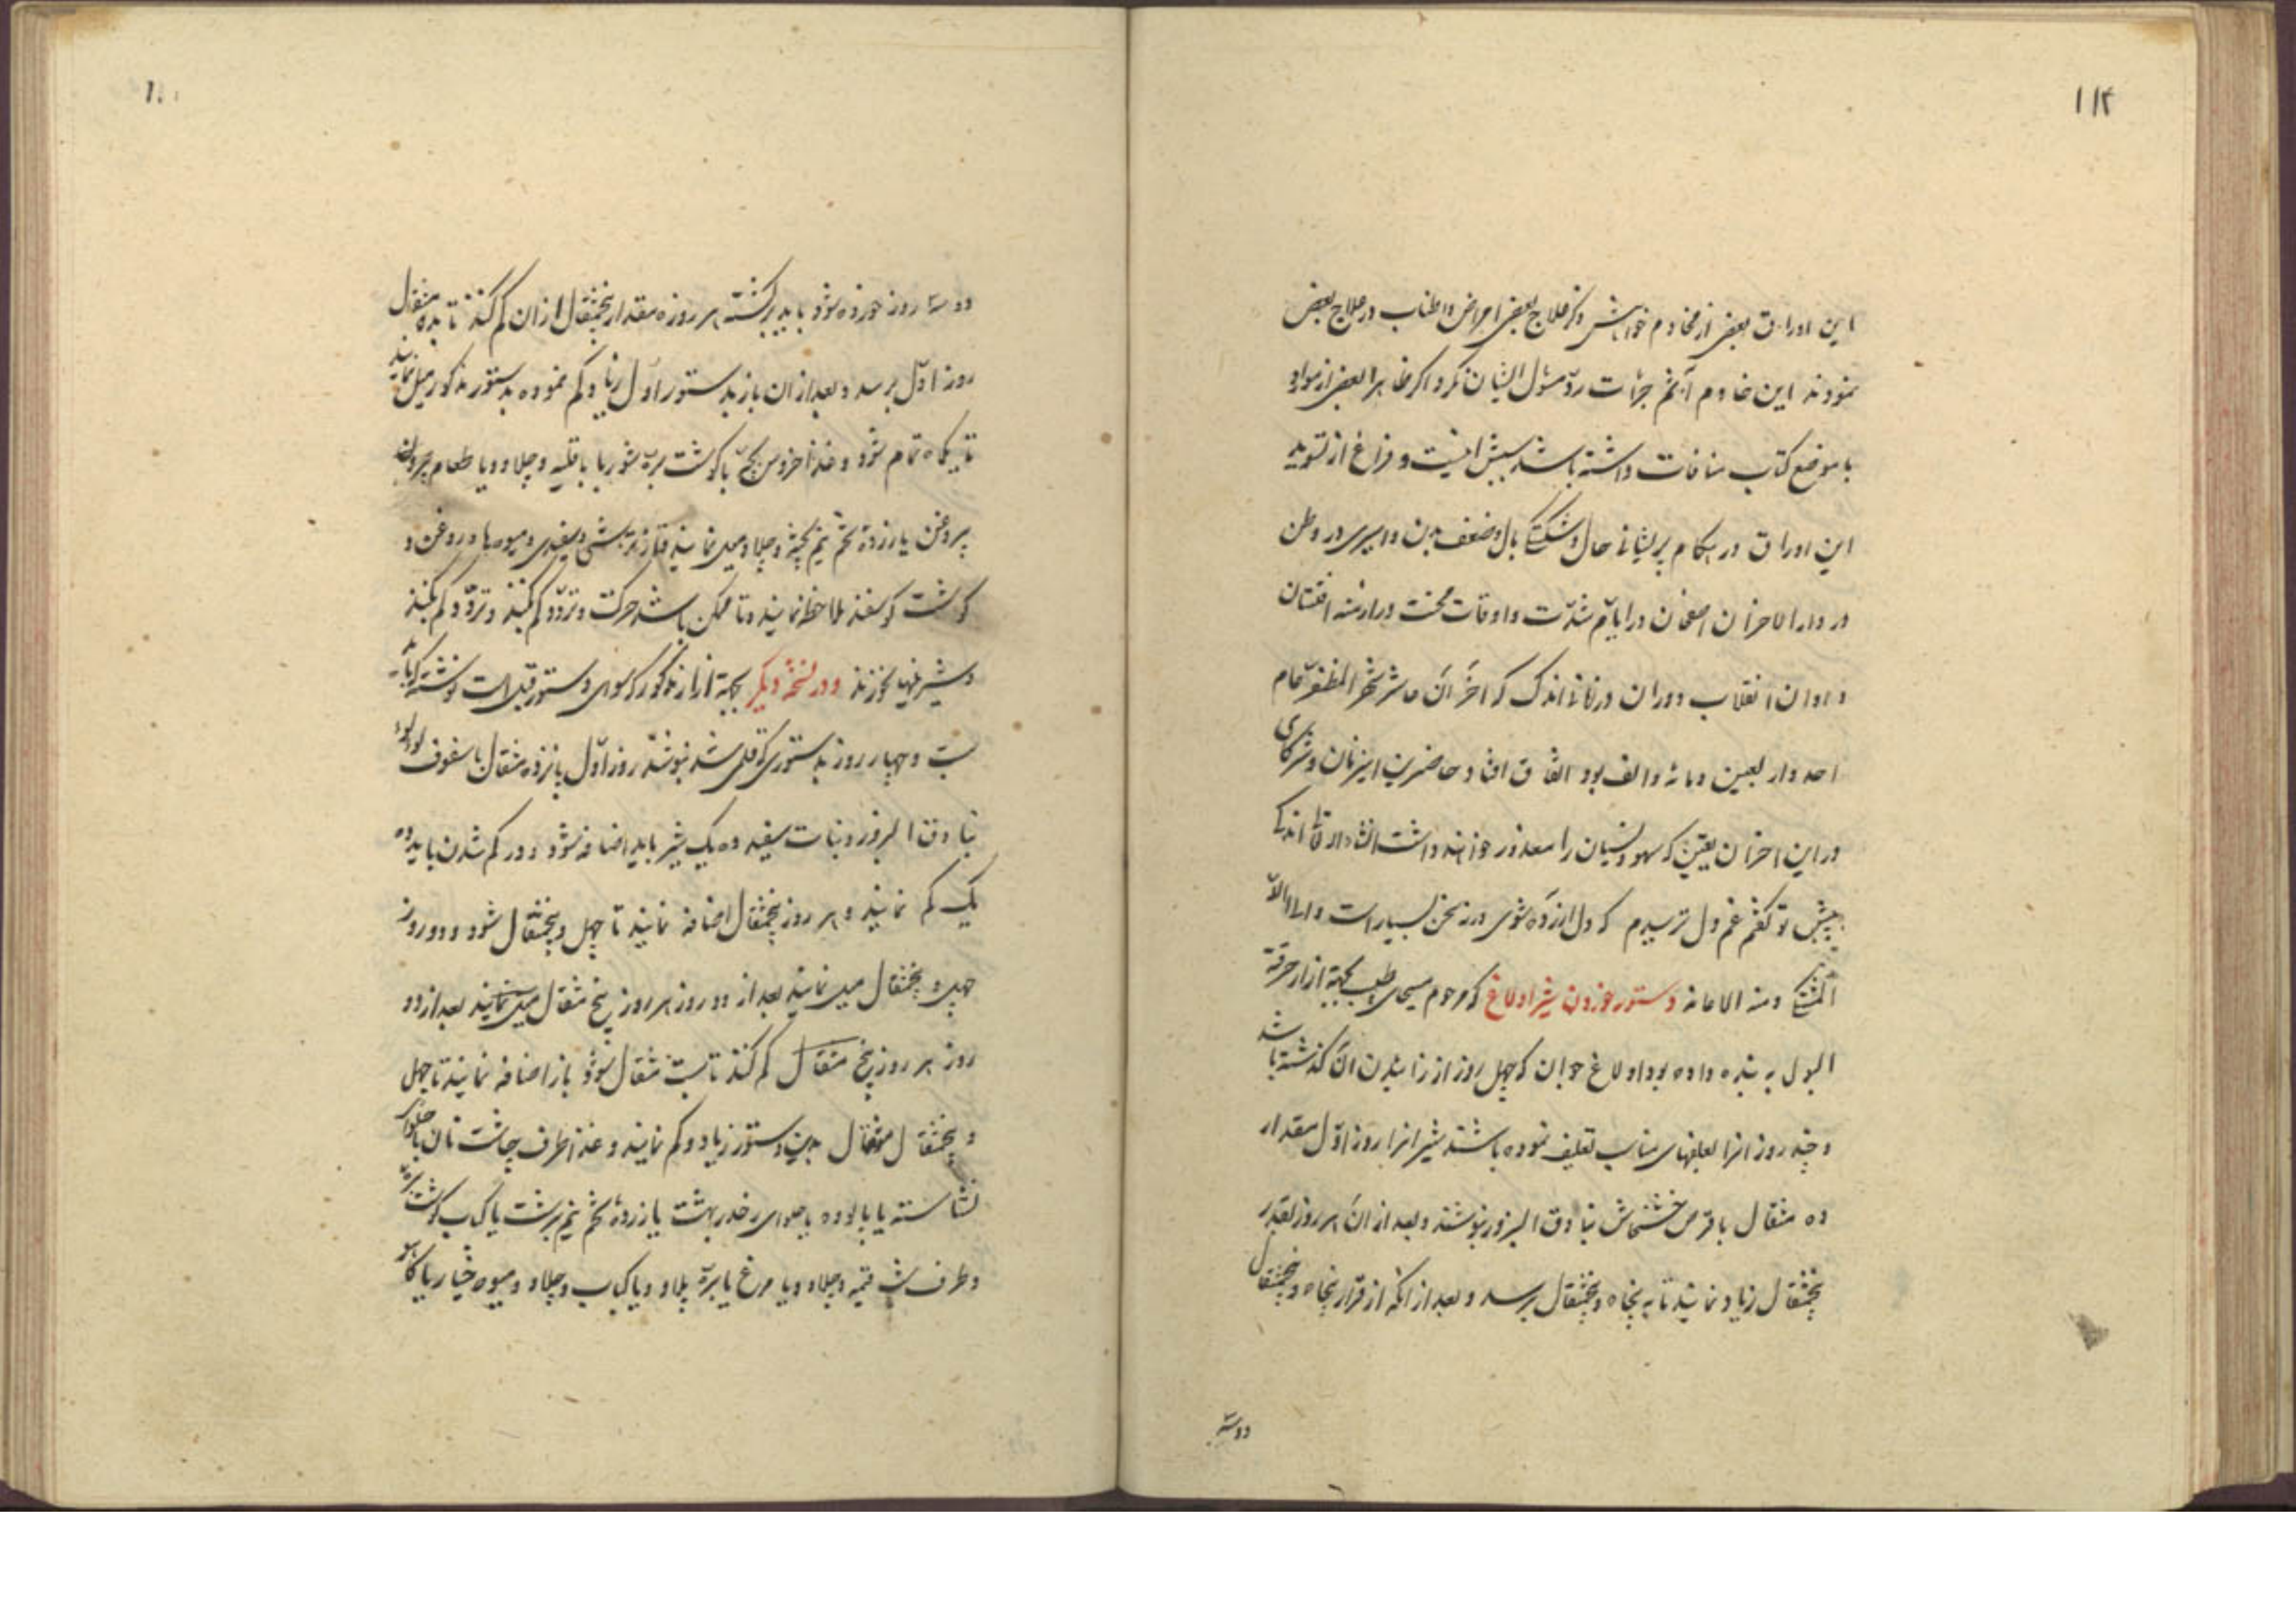 ۱۱۴
این اوراق بعضی از مخادیم خواهش ذکر علاج بعضی امراض و اطناب در علاج بعض
نمودند این خادم آثم جرأت رد مسئول ایشان نکرد اکر ظاهرا بعضی از مواد
با موضع کتاب منافات داشته باشد سببش اینست و فراغ از تسوید
این اوراق در هنکام پریشانی حال و شکستکی بال و ضعف بدن و اسیری در وطن
در دار الاحزان اصفهان در ایام شدت و اوقات محنت و ازمنه افتتان
و اوان انقلاب دوران در زمانی اندک که آخر آن عاشر شهر المظفر عام
احد و اربعین و مائه و الف بود اتفاق افتاد حاضرین این زمان و شرکای
در این احزان یقین که سهو و نسیان را معذور خواهند داشت انشاء الله تعالی اندکی
پیش تو کفتم غم دل ترسیدم که دل آزرده شوی ورنه سخن بسیار است و الی الله
المشتکی و منه الاعانه دستور خوردن شیر اولاغ که مرحوم مسیحای طبیب بجهة ازار حرقة
البول به بنده داده بود اولاغ جوان که چهل روز از زائیدن آن کذشته باشد
و چند روز انرا بعلفهای مناسب تعلیف نموده باشند شیر انرا روز اول مقدار
ده مثقال با قرص خشخاش بنادق البزور بنوشند و بعد از آن هر روز بقدر
پنجمثقال زیاد نمایند تا به پنجاه و پنجمثقال برسد و بعد از انکه از قرار پنجاه و پنجمثقال
دو سه
دو سه روز خورده شود باید برکشته هر روزه مقدار پنجمثقال از ان کم کنند تا بده مثقال
روز اول برسد و بعد از ان باز بدستور اول زیاد و کم نموده بدستور مذکور میل نمایند
تا یکماه تمام شود و غذا خروس بچه یا کوشت بره شوربا یا قلیه و چلاو و یا طعام
بیروغن یا زرده تخم نیم پخته و چلاو میل نمایند و از ترشی و سفیدی و میوه‌ها و روغن و
کوشت کوسفند ملاحظه نمایند و تا ممکن باشد حرکت و تردد کم کنند و تردد کم کنند
و شیرینیها نخورند و در نسخه دیکر بجهة ازار مذکور که سوای دستور قبل است نوشته که باید
بیست و چهار روز بدستوری که قلمی شد بنوشند روز اول پانزده مثقال با سفوف
بنادق البزور و نبات سفید ده یک شیر باید اضافه شود و در کم شدن باید ده
یک کم نمایند و هر روز پنجمثقال اضافه نمایند تا چهل و پنجمثقال شود و دو روز
چهل و پنجمثقال میل نمایند بعد از دو روز هر روز پنج مثقال میل نمایند بعد از دو
روز هر روز پنج مثقال کم کنند تا بیست مثقال شود باز اضافه نمایند تا چهل
و پنجمثقال مثقال بدین دستور زیاد و کم نمایند و غذا طرف چاشت نان با حلوای
نشاسته یا پالوده یا حلوای رغدر بهشت یا زرده تخم نیم برشت یا کباب کوشت بره
و طرف شب قیمه و چلاو و یا مرغ یا بره پلاو و یا کباب و چلاو و میوه خیار یا کاهو